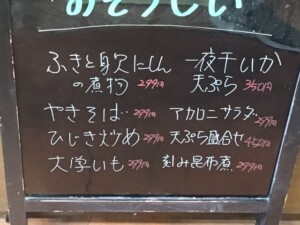 おそうしい
ふきと身欠にしん
の煮物 299円
やきそば 299円
ひじき炒め 299円
大学いも 299円
一夜干いか
天ぷら 350円
マカロニサラダ 299円
天ぷら盛合せ 450円
刻み昆布煮 299円